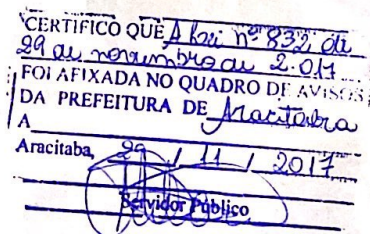 CERTIFICO QUE A Lei nº 832 de
29 de novembro de 2.017
FOI AFIXADA NO QUADRO DE AVISOS
DA PREFEITURA DE Aracitaba
A
Aracitaba, 29 / 11 / 2017
Servidor Público